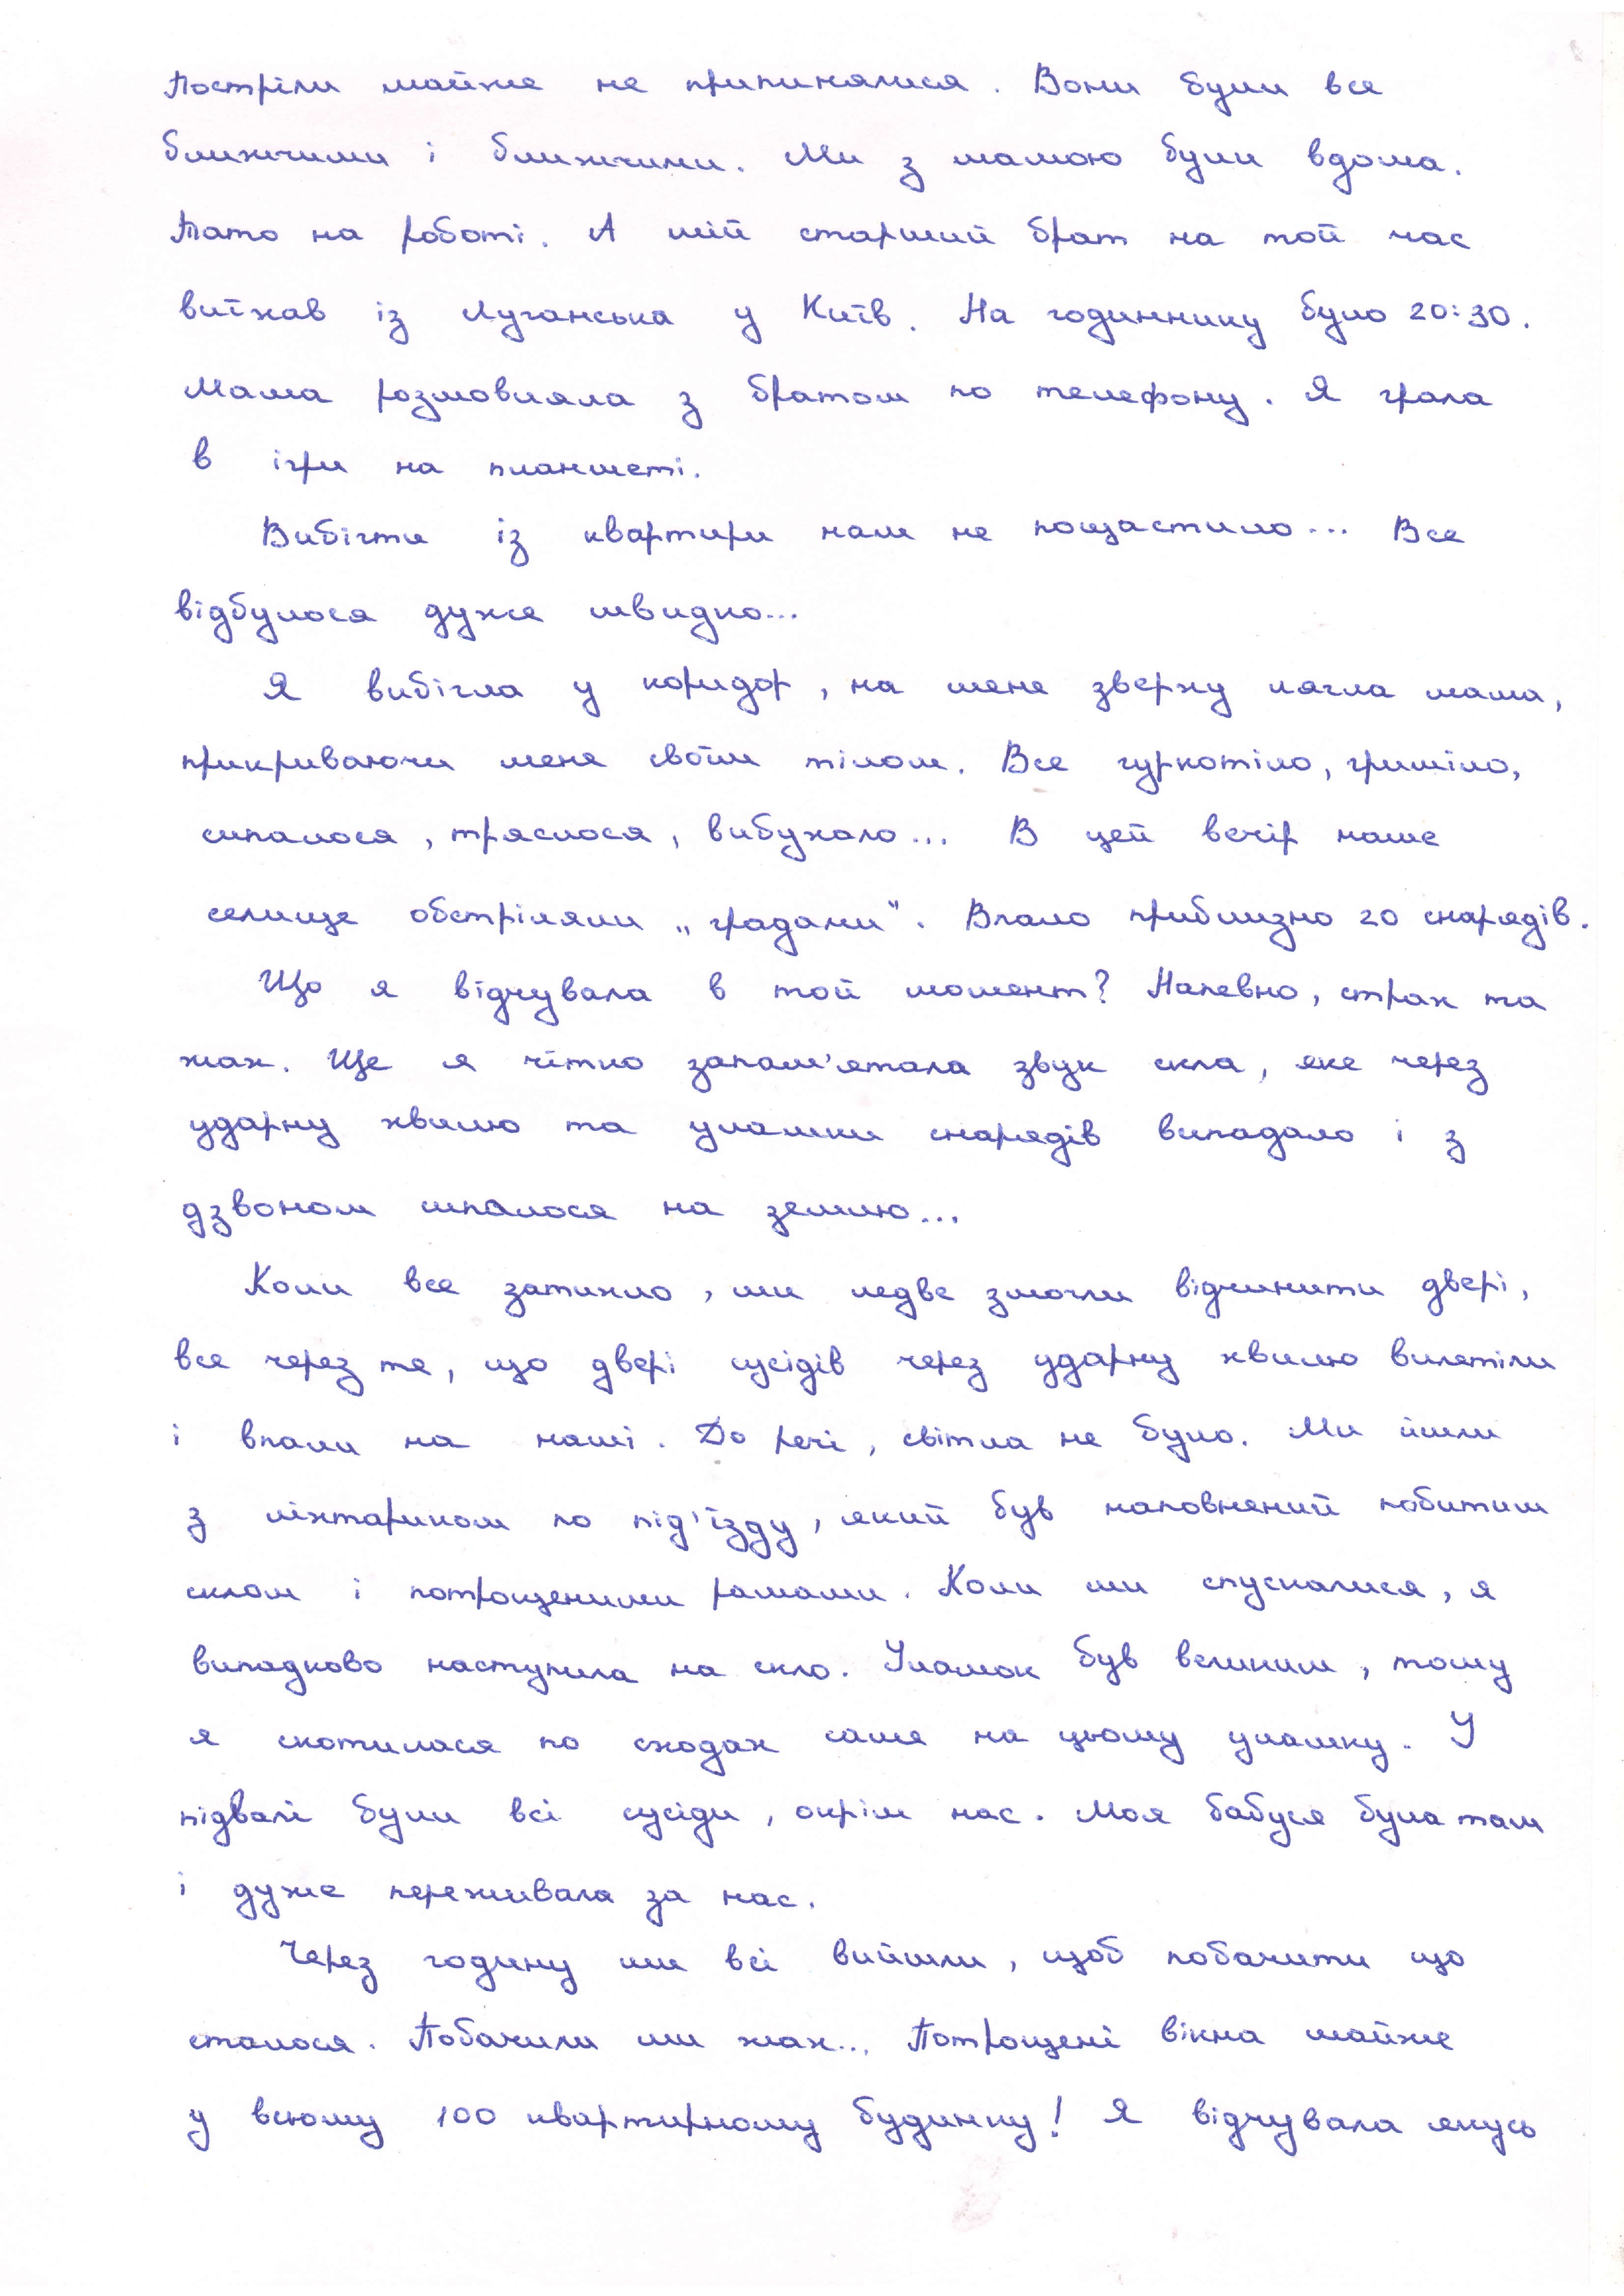 Постріли майже не припинялися. Вони були все
ближчими і ближчими. Ми з мамою були вдома.
Тато на роботі. А мій старший брат на той час
виїхав із Луганська у Київ. На годиннику було 20:30.
Мама розмовляла з братом по телефону. Я грала
в ігри на планшеті.
Вибігти із квартири нам не пощастило... Все
відбулося дуже швидко...
Я вибігла у коридор, на мене зверху лягла мама,
прикриваючи мене своїм тілом. Все гуркотіло, гриміло,
сипалося, тряслося, вибухало... В цей вечір наше
селище обстріляли „градами". Впало приблизно 20 снарядів.
Що я відчувала в той момент? Напевно, страх та
жах. Ще я чітко запам'ятала звук скла, яке через
ударну хвилю та уламки снарядів випадало і з
дзвоном сипалося на землю...
Коли все затихло, ми ледве змогли відчинити двері,
все через те, що двері сусідів через ударну хвилю вилетіли
і впали на наші. До речі, світла не було. Ми йшли
з ліхтариком по під'їзду, який був наповнений побитим
склом і потрощеними рамами. Коли ми спускалися, я
випадково наступила на скло. Уламок був великим, тому
я скотилася по сходах саме на цьому уламку. У
підвалі були всі сусіди, окрім нас. Моя бабуся була там
і дуже переживала за нас.
Через годину ми всі вийшли, щоб побачити що
сталося. Побачили ми жах... Потрощені вікна майже
у всьому 100 квартирному будинку! Я відчувала якусь